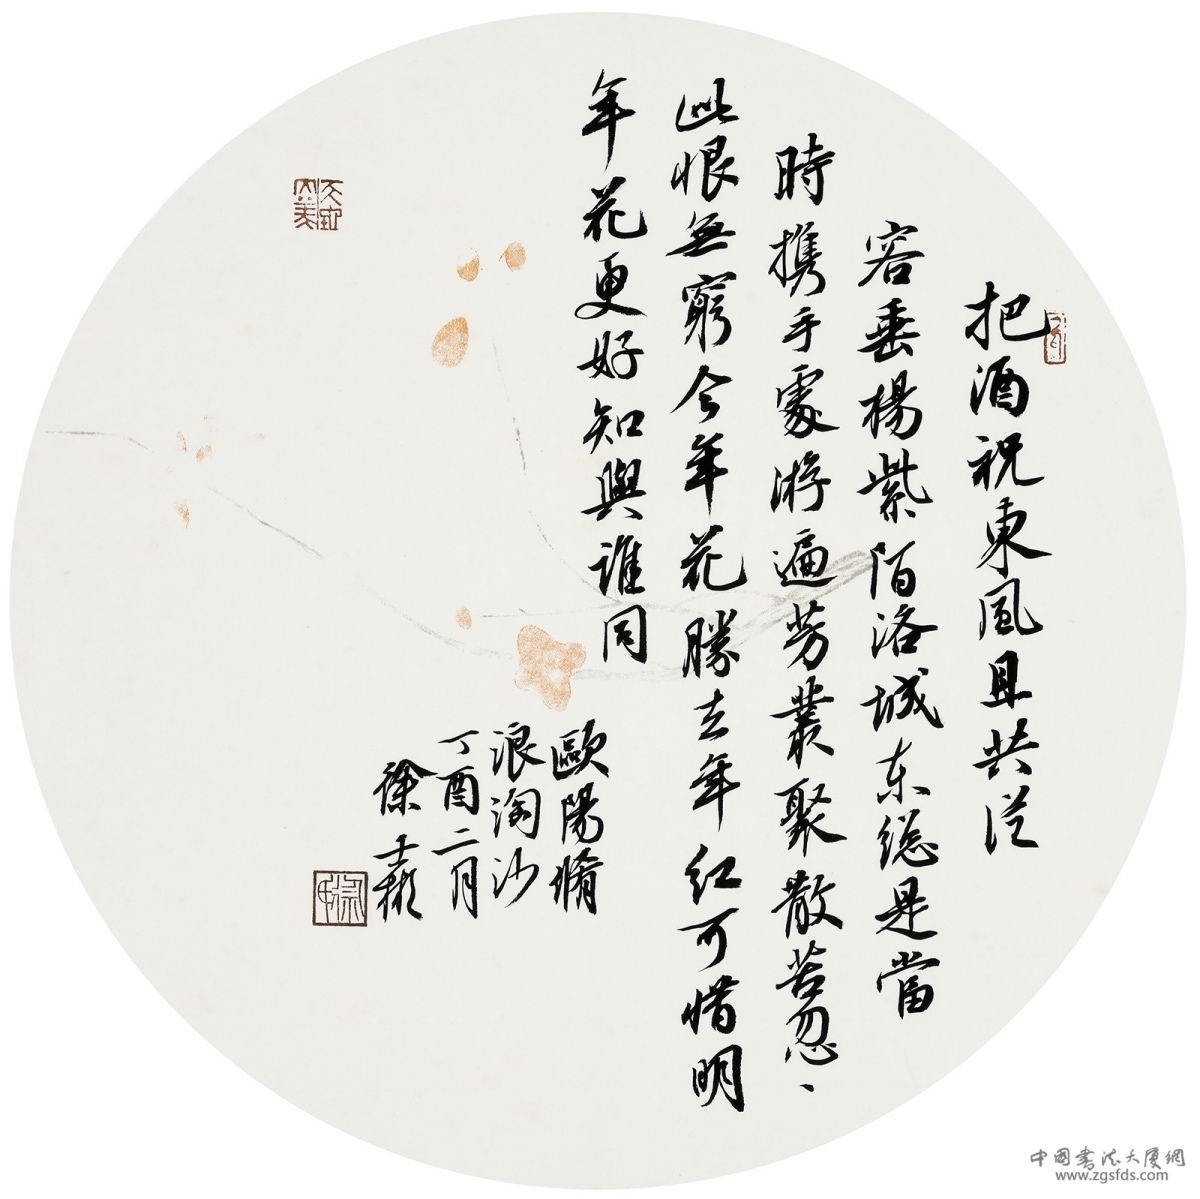 把酒祝東風且共從
容垂楊紫陌洛城东總是當
時携手處游遍芳叢聚散苦怱〻
此恨無窮今年花勝去年红可惜明
年花更好知與誰同
歐陽脩
浪淘沙
丁酉二月
徐 彬
天地大美
中国書法大厦網
www.zgsfds.com